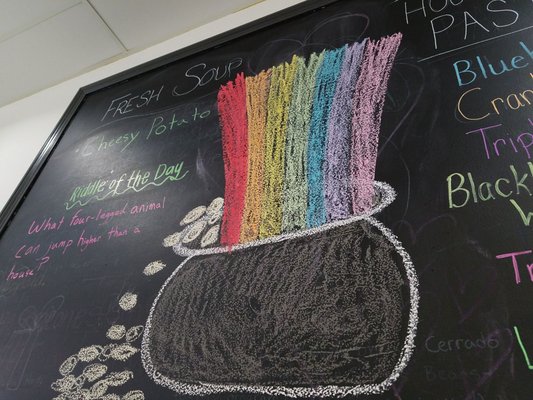 FRESH SOUP
Cheesy Potato
Riddle of the Day
What four-legged animal
can jump higher than a
house?
HOU
PAS
Blueb
Cran
Tripl
Blackb
W
Tr
Cerrado
Beans